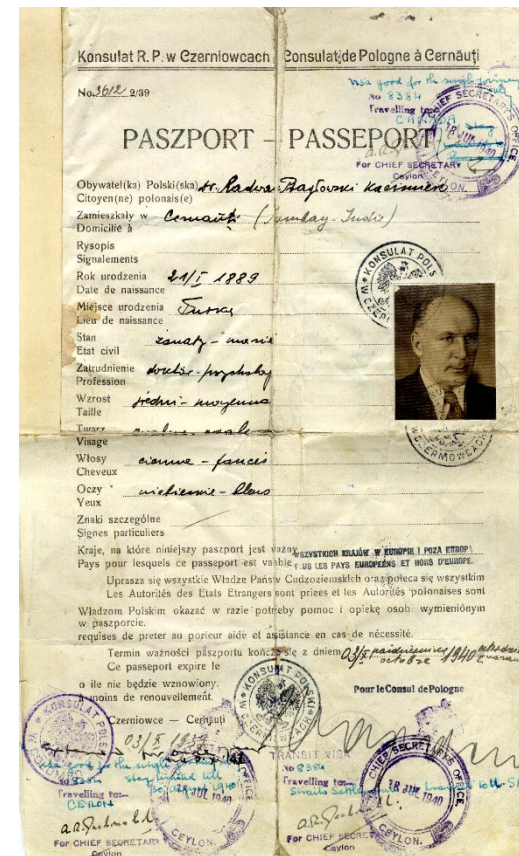 Konsulat R. P. w Czerniowcach Consulat de Pologne à Cernăuți
No. 3612/2/39
visa good for the single journey
No 8384
Travelling to:-
CANADA
CHIEF SECRETARY'S OFFICE
18 JUL 1940
CEYLON.
For CHIEF SECRETARY
Ceylon
PASZPORT – PASSEPORT
Obywatel(ka) Polski(ska) dr. Kazimierz
Citoyen(ne) polonais(e)
Zamieszkały w Cernăuți (Bombay-India)
Domicilié à
Rysopis
Signalements
Rok urodzenia 21/I 1889
Date de naissance
Miejsce urodzenia Turka
Lieu de naissance
Stan żonaty - marié
Etat civil
Zatrudnienie doktór
Profession
Wzrost średni - moyenne
Taille
Twarz owalna - ovale
Visage
Włosy ciemne - foncés
Cheveux
Oczy niebieskie - bleus
Yeux
Znaki szczególne
Signes particuliers
KONSULAT POLSKI
W CZERNIOWCACH
Kraje, na które niniejszy paszport jest ważny WSZYSTKICH KRAJÓW W EUROPIE I POZA EUROPĄ
Pays pour lesquels ce passeport est valable TOUS LES PAYS EUROPÉENS ET HORS D'EUROPE.
Uprasza się wszystkie Władze Państw Cudzoziemskich oraz poleca się wszystkim
Les Autorités des Etats Etrangers sont priees et les Autorités polonaises sont
Władzom Polskim okazać w razie potrzeby pomoc i opiekę osob. wymienionym
w paszporcie.
requises de preter au porteur aide et assistance en cas de nécessité.
Termin ważności paszportu kończy się z dniem 03/X października 1940
Ce passeport expire le octobre
o ile nie będzie wznowiony.
à moins de renouvellement.
Pour le Consul de Pologne
KONSULAT POLSKI
W CZERNIOWCACH
Czerniowce — Cernăuți
03/X
KONSULAT POLSKI
W COLOMBO
visa good for the single journey
No 8384 stay limited till
30 August 1940
Travelling to:-
CEYLON
For CHIEF SECRETARY
Ceylon
CEYLON.
18 JUL 1940
TRANSIT VISA
No 8384
Travelling to:-
Straits Settlements
CHIEF SECRETARY'S OFFICE
18 JUL 1940
CEYLON.
For CHIEF SECRETARY
Ceylon